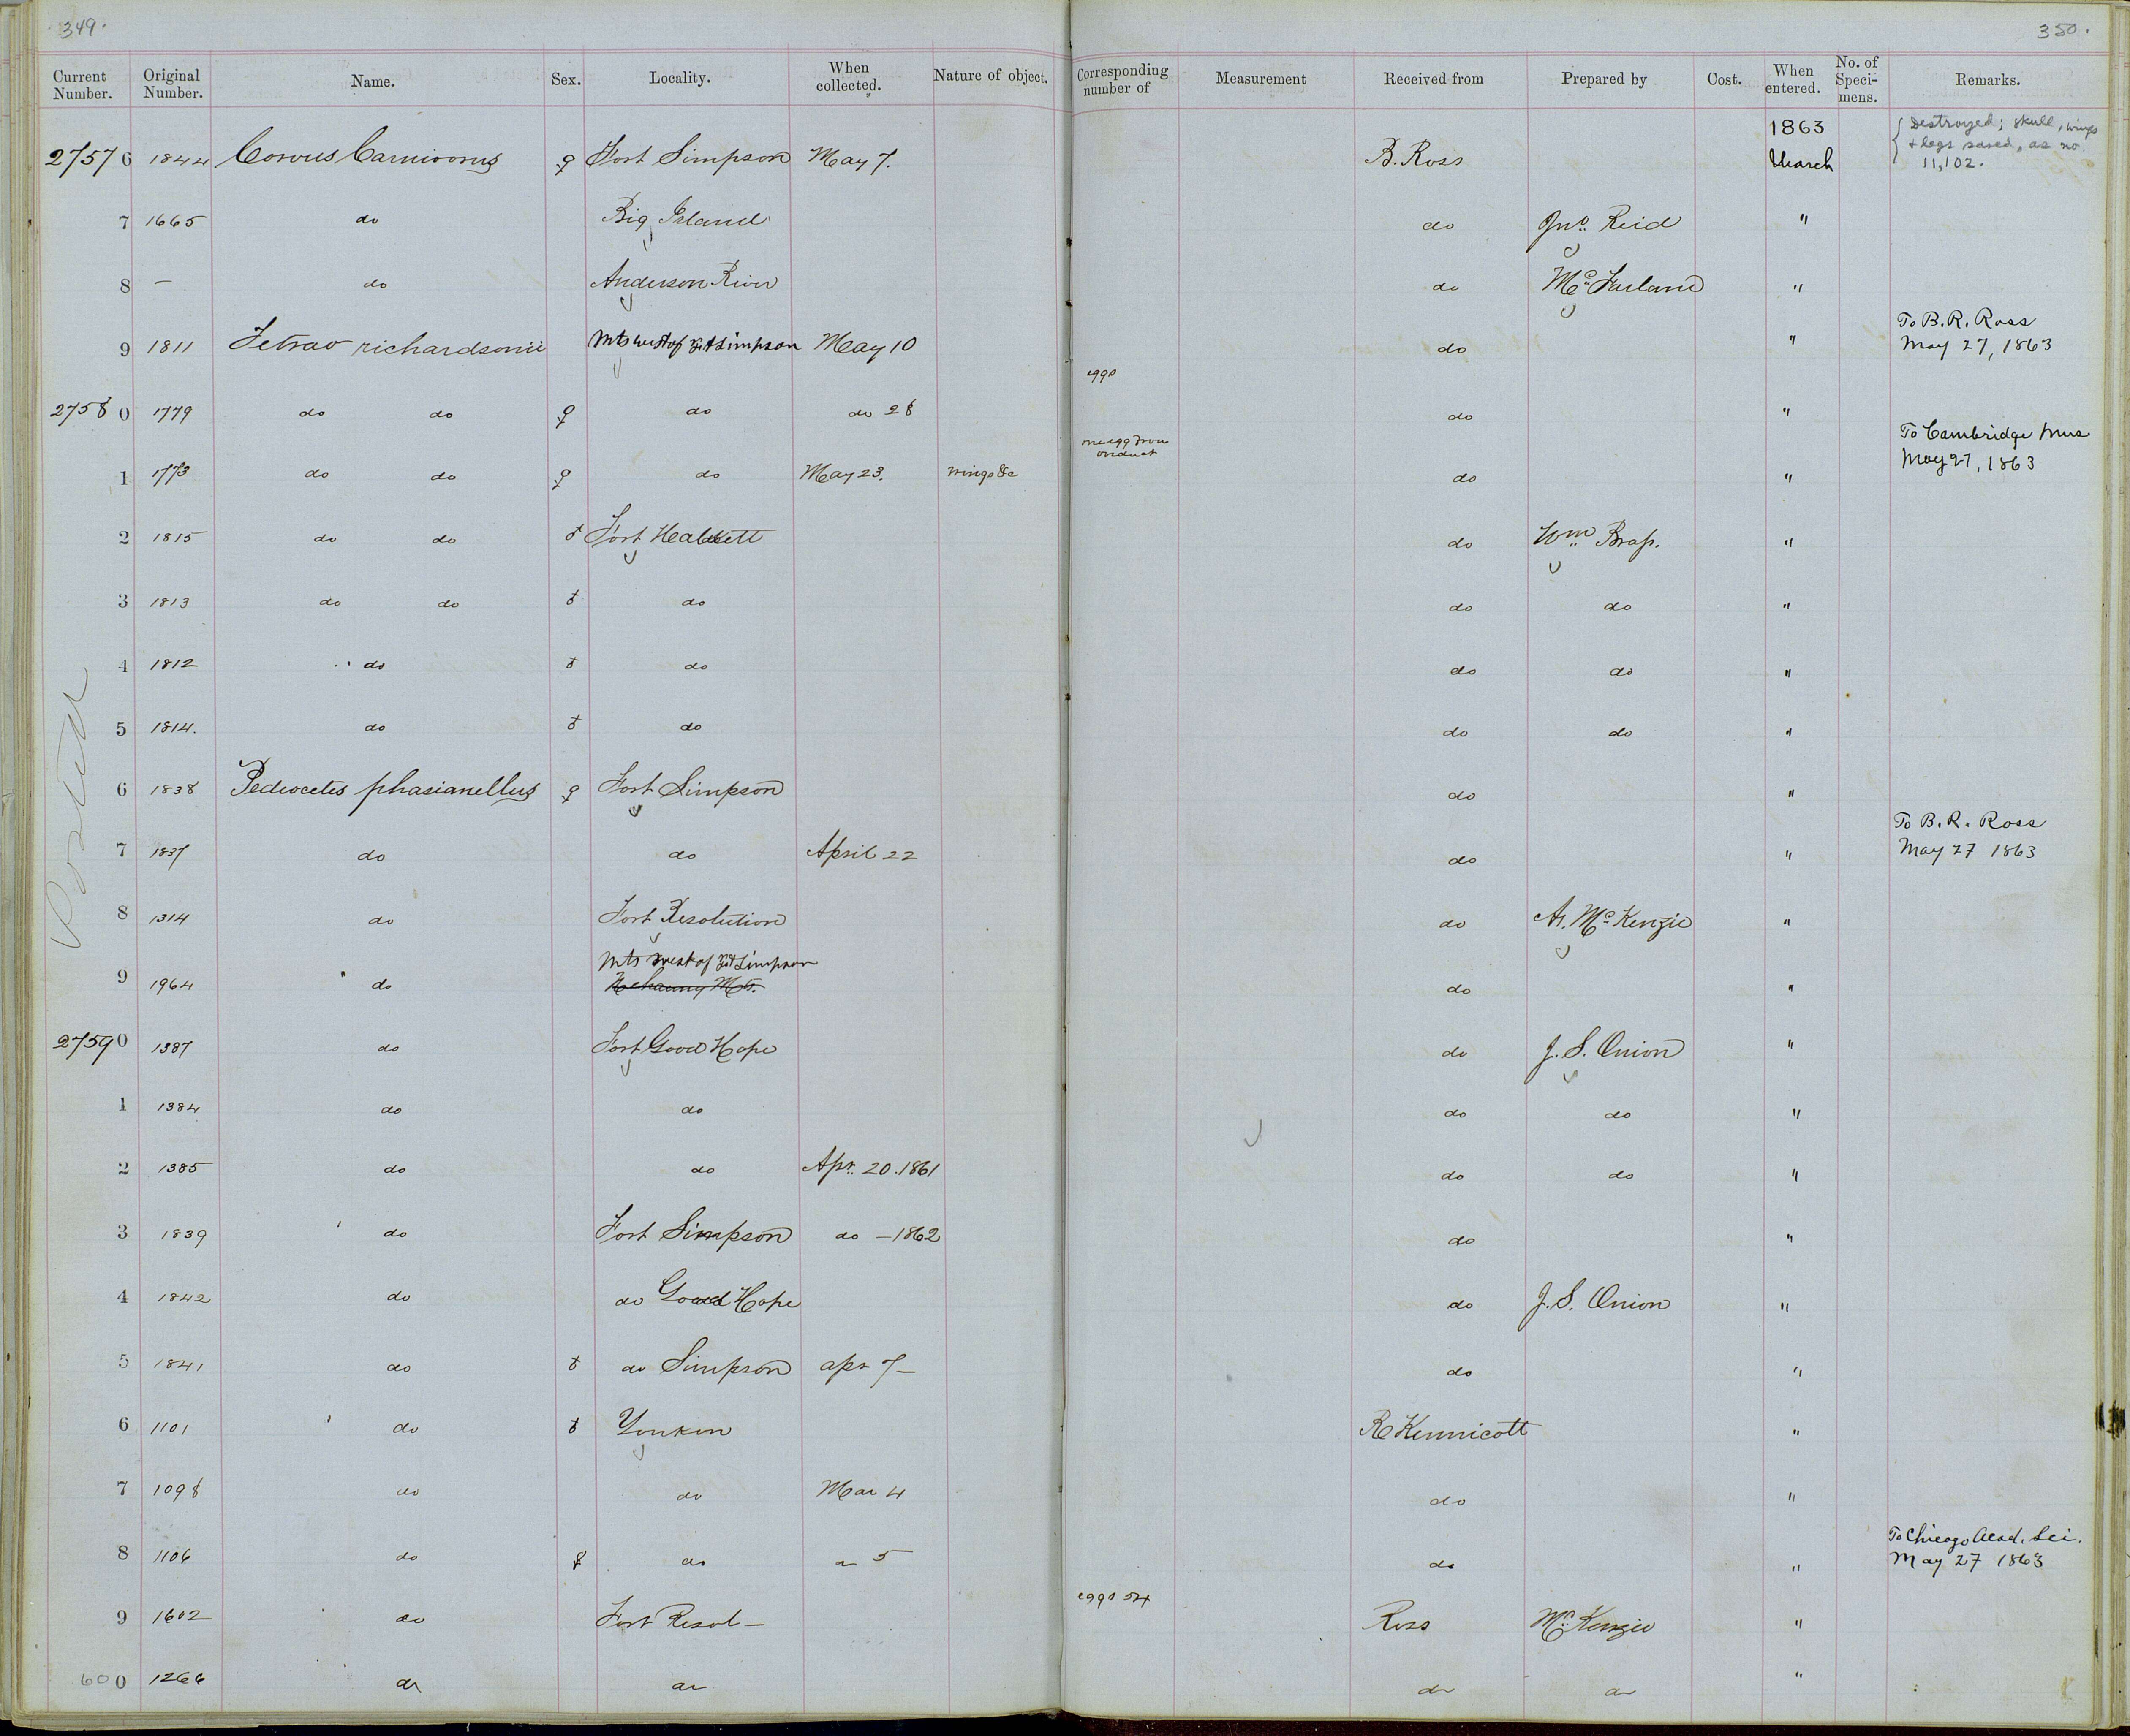 349.
350.
Current Number. Original Number. Name. Sex. Locality. When collected. Nature of object. Corresponding number of Measurement Received from Prepared by Cost. When entered. No. of Specimens. Remarks.
27576 1844 Corvus Carnivorus ♀ Fort Simpson May 7. B. Ross 1863 March { Destroyed; skull, wings & legs saved, as no. 11,102.
7 1665 do Big Island do Jno. Reid "
8 — do Anderson River do Mc Farland "
9 1811 Tetrao richardsonii Mts west of Ft Simpson May 10 do " To B. R. Ross May 27, 1863
27580 1779 do do ♀ do do 28 eggs do "
1 1773 do do ♀ do May 23. wings &c one egg from oviduct do " To Cambridge Mus May 27, 1863
2 1815 do do ♂ Fort Halkett do Wm. Brass. "
3 1813 do do ♂ do do do "
4 1812 do ♂ do do do "
5 1814. do ♂ do do do "
6 1838 Pediocetes phasianellus ♀ Fort Simpson do "
7 1837 do do April 22 do " To B. R. Ross May 27 1863
8 1314 do Fort Resolution do A. McKenzie "
9 1964 do Mts west of Ft Simpson do "
27590 1387 do Fort Good Hope do J. S. Onion "
1 1384 do do do do "
2 1385 do do Apr. 20. 1861 do do "
3 1839 do Fort Simpson do — 1862 do "
4 1842 do do Good Hope do J. S. Onion "
5 1841 do ♂ do Simpson apr 7 — do "
6 1101 do ♂ Youkon R Kennicott "
7 1098 do do Mar 4 do "
8 1106 do ♀ do do 5 do " To Chicago Acad. Sci. May 27 1863
9 1602 do Fort Resol — eggs Ross McKenzie "
600 1266 do do do do "
Posted